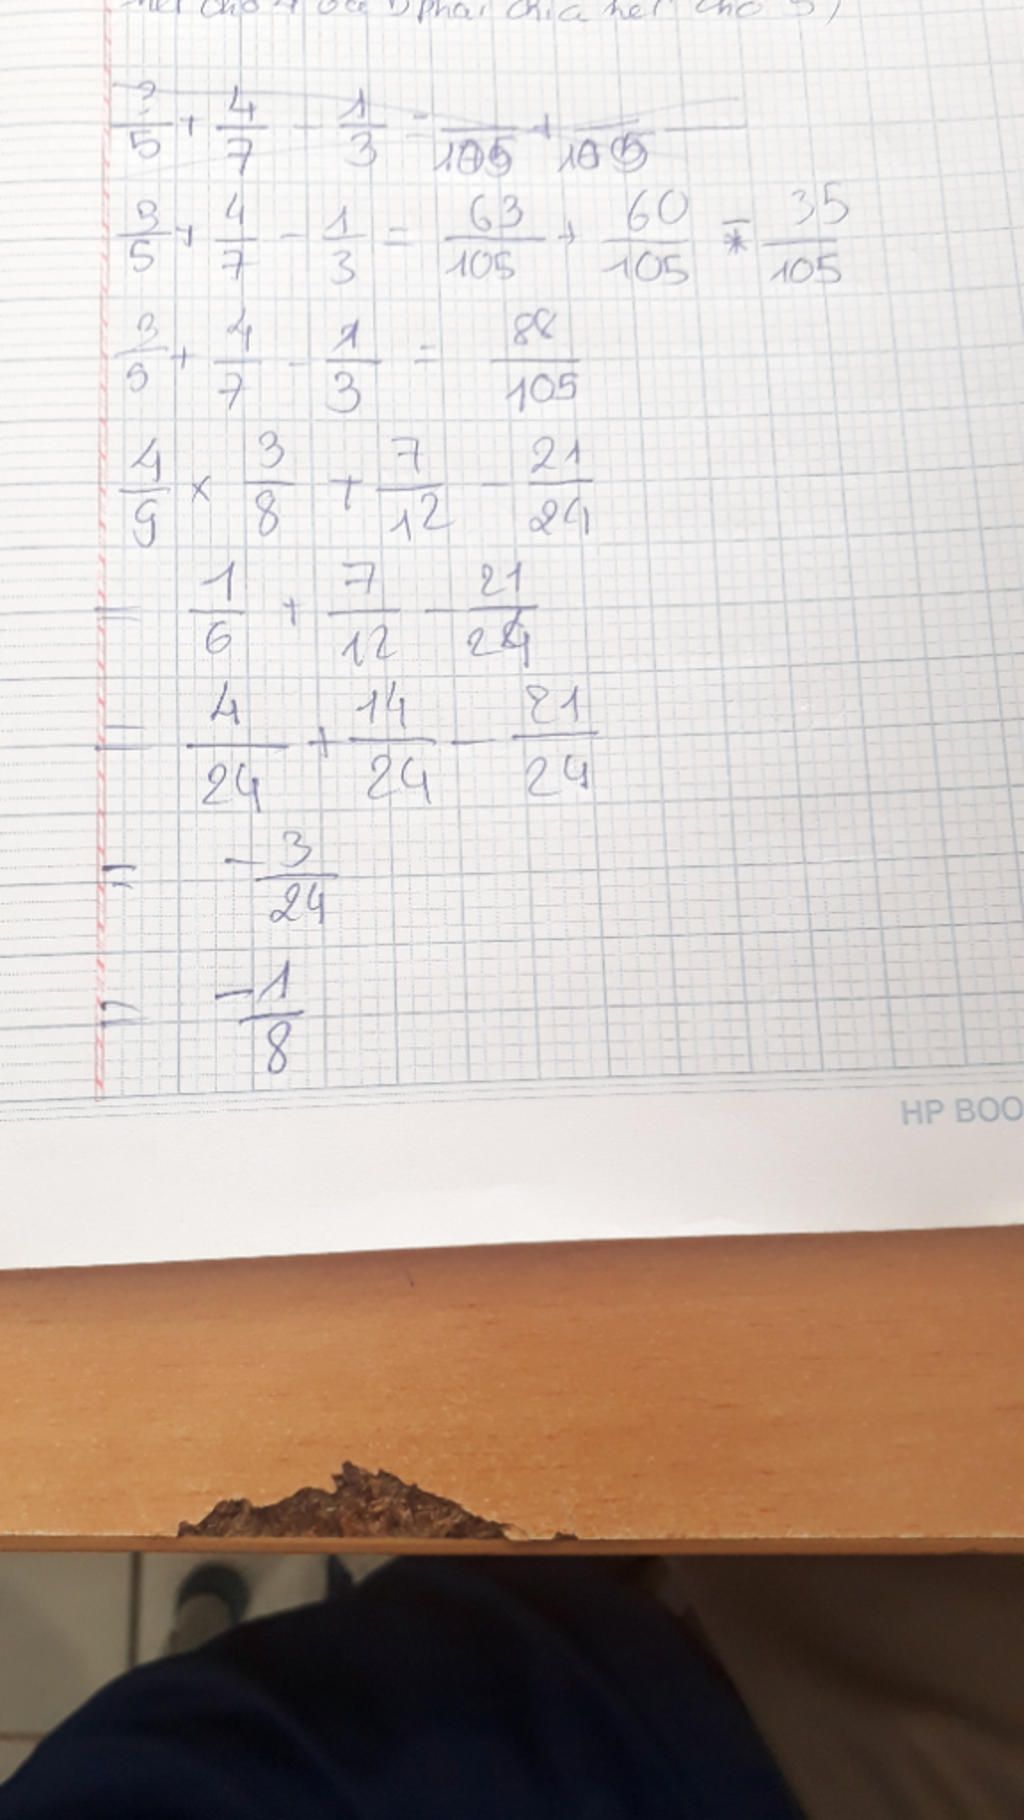 phải chia hết cho 5)
3/5 + 4/7 - 1/3 = /105 + /105
3/5 + 4/7 - 1/3 = 63/105 + 60/105 - 35/105
3/5 + 4/7 - 1/3 = 88/105
4/9 x 3/8 + 7/12 - 21/24
= 1/6 + 7/12 - 21/24
= 4/24 + 14/24 - 21/24
= -3/24
= -1/8
HP BOO